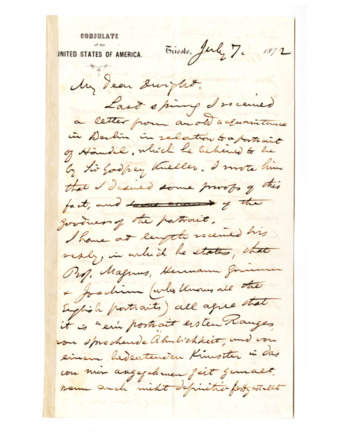 CONSULATE
of the
UNITED STATES OF AMERICA.
Trieste, July 7. 1872
My dear Dwight.
Last spring I received
a letter from an old acquaintance
in Berlin in relation to a portrait
of Händel, which he believed to be
by Sir Godfrey Kneller. I wrote him
that I desired some proofs of this
fact, and of the
goodness of the portrait.
I have at length received his
reply, in which he states, that
Prof. Magnus, Hermann Grimm
& Joachim (who knows all the
English portraits) all agree that
it is "ein portrait ersten Ranges
von sprechende Ähnlichkeit, und von
einem bedeutenden Künstler in das
von mir angegebenen Zeit gemalt,
wenn auch nicht definitiv festgestellt